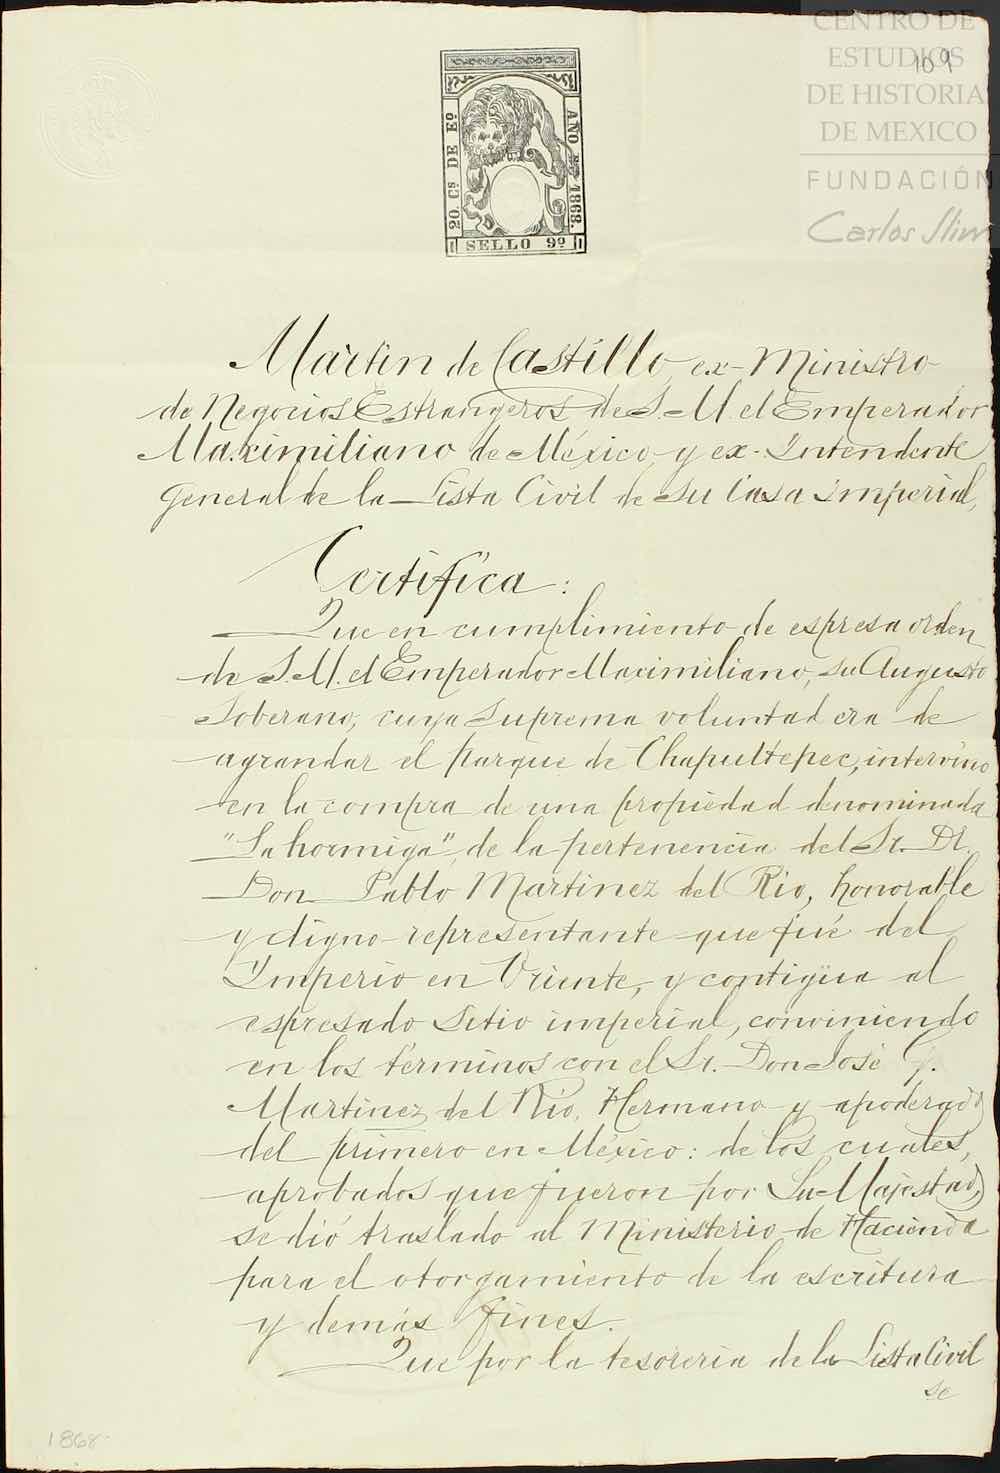 CENTRO DE
ESTUDIOS
DE HISTORIA
DE MEXICO
FUNDACIÓN
Carlos Slim
109
20. Cs DE Eo
AÑO 1868.
SELLO 9o
Martin de Castillo, ex-Ministro
de Negocios Estrangeros de S. M. el Emperador
Maximiliano de México y ex-Intendente
General de la Lista Civil de su Casa Imperial,
Certifica:
Que en cumplimiento de espresa orden
de S. M. el Emperador Maximiliano, su Augusto
Soberano, cuya suprema voluntad era de
agrandar el parque de Chapultepec, intervino
en la compra de una propiedad denominada
"La hormiga", de la pertenencia del Sr. Dr.
Don Pablo Martinez del Rio, honorable
y digno representante que fué del
Imperio en Oriente, y contigüa al
espresado Sitio imperial, conviniendo
en los términos con el Sr. Don José G.
Martinez del Rio, Hermano y apoderado
del primero en México: de los cuales,
aprobados que fueron por Su Majestad,
se dió traslado al Ministerio de Hacienda
para el otorgamiento de la escritura
y demás fines.
Que por la tesoreria de la Lista Civil
se
1868